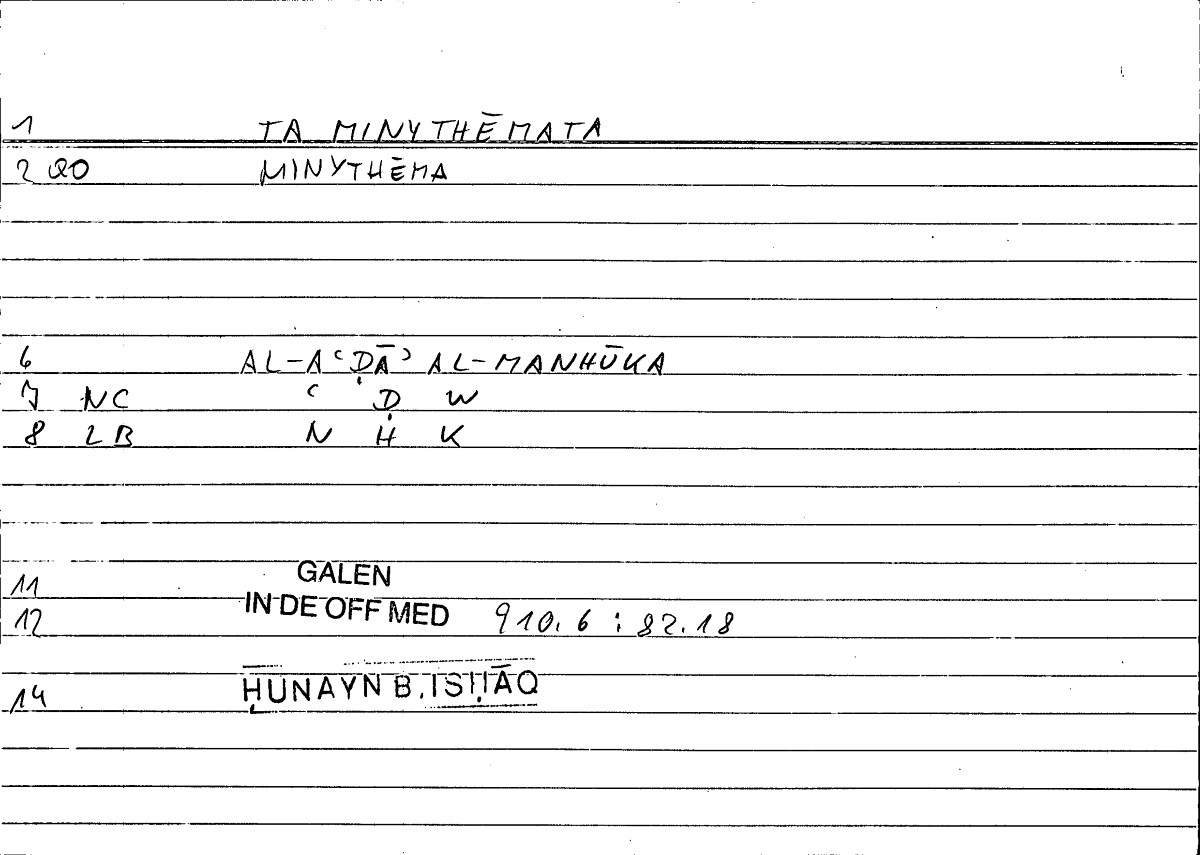 1 TA MINYTHĒMATA
2 QO MINYTHĒMA
6 AL-AʿḌĀʾ AL-MANHŪKA
7 NC ʿ Ḍ W
8 LB N H K
11 GALEN
12 IN DE OFF MED 910.6 : 82.18
14 ḤUNAYN B. ISḤĀQ